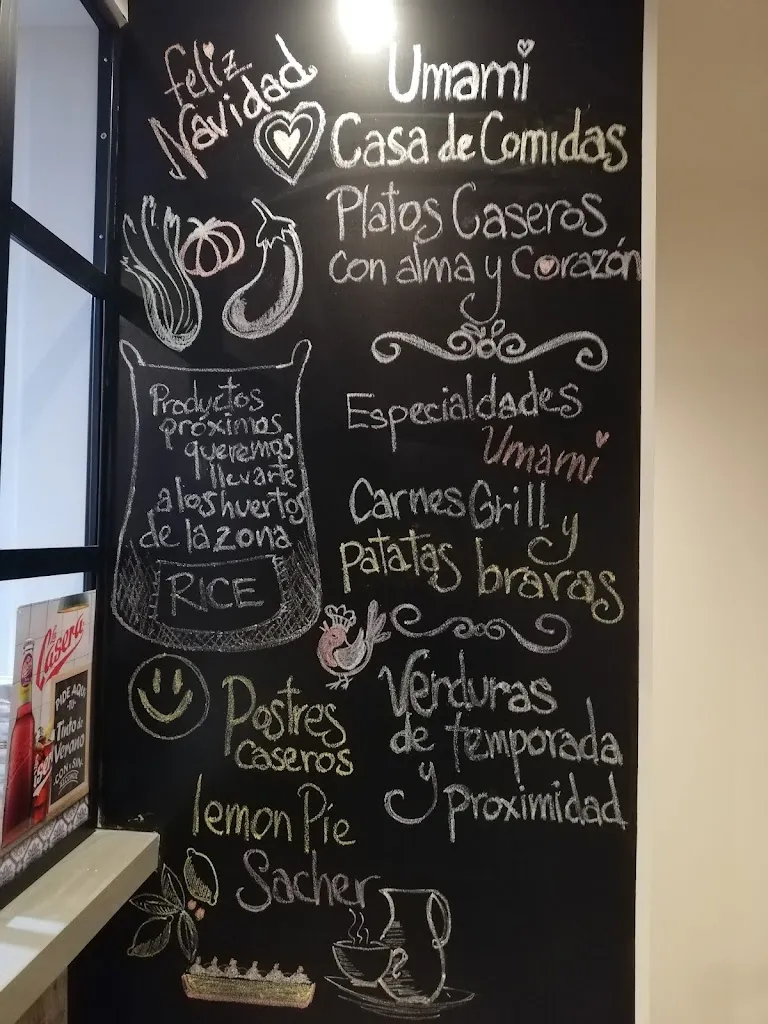 feliz
Navidad
Umami
Casa de Comidas
Platos Caseros
con alma y Corazón
Productos
próximos
queremos
llevarte
a los huertos
de la zona
RICE
Especialdades
Umami
Carnes Grill y
patatas bravas
Verduras
de temporada
y
proximidad
Postres
caseros
lemon Pie
Sacher
la Casera
PIDE AQUÍ
TU
Tinto de
Verano
CON Y SIN